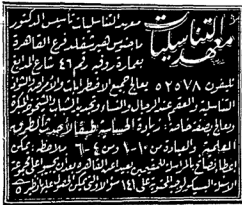 معهد التناسليات
معهد التناسليات تأسيس الدكتور
ماجنوس هيرشفلد فرع القاهرة
بعمارة روفيه رقم ٤٦ شارع المدابغ
تليفون ٥٢٥٧٨ يعالج جميع الاضطرابات والامراض والشواذ
التناسلية والعقم عند الرجال والنساء وتجديد الشباب والشيخوخة المبكرة
ويعالج بصفة خاصة: سرعة طبقا لأحدث الطرق
العلمية والعيادة من ١٠ - ١ ومن ٤ - ٦ ملاحظة: يمكن
اعطاء نصائح بالمراسلة للمقيمين بعيدا عن القاهرة بعد أن يجيبوا على مجموعة
الاسئلة البسيكولوجية المحتوية على ١٤١ سؤالا والتى يمكن الحصول عليها نظير